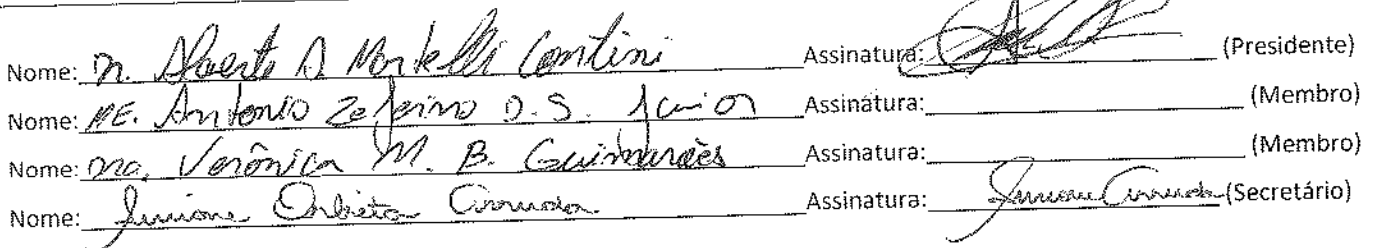 Nome: Dr. Alaerte A Martelli Contini Assinatura: (Presidente)
Nome: ME. Antonio Zeferino D. S. Junior Assinatura: (Membro)
Nome: Dra. Verônica M. B. Guimarães Assinatura: (Membro)
Nome: Arruda Assinatura: Arruda (Secretário)